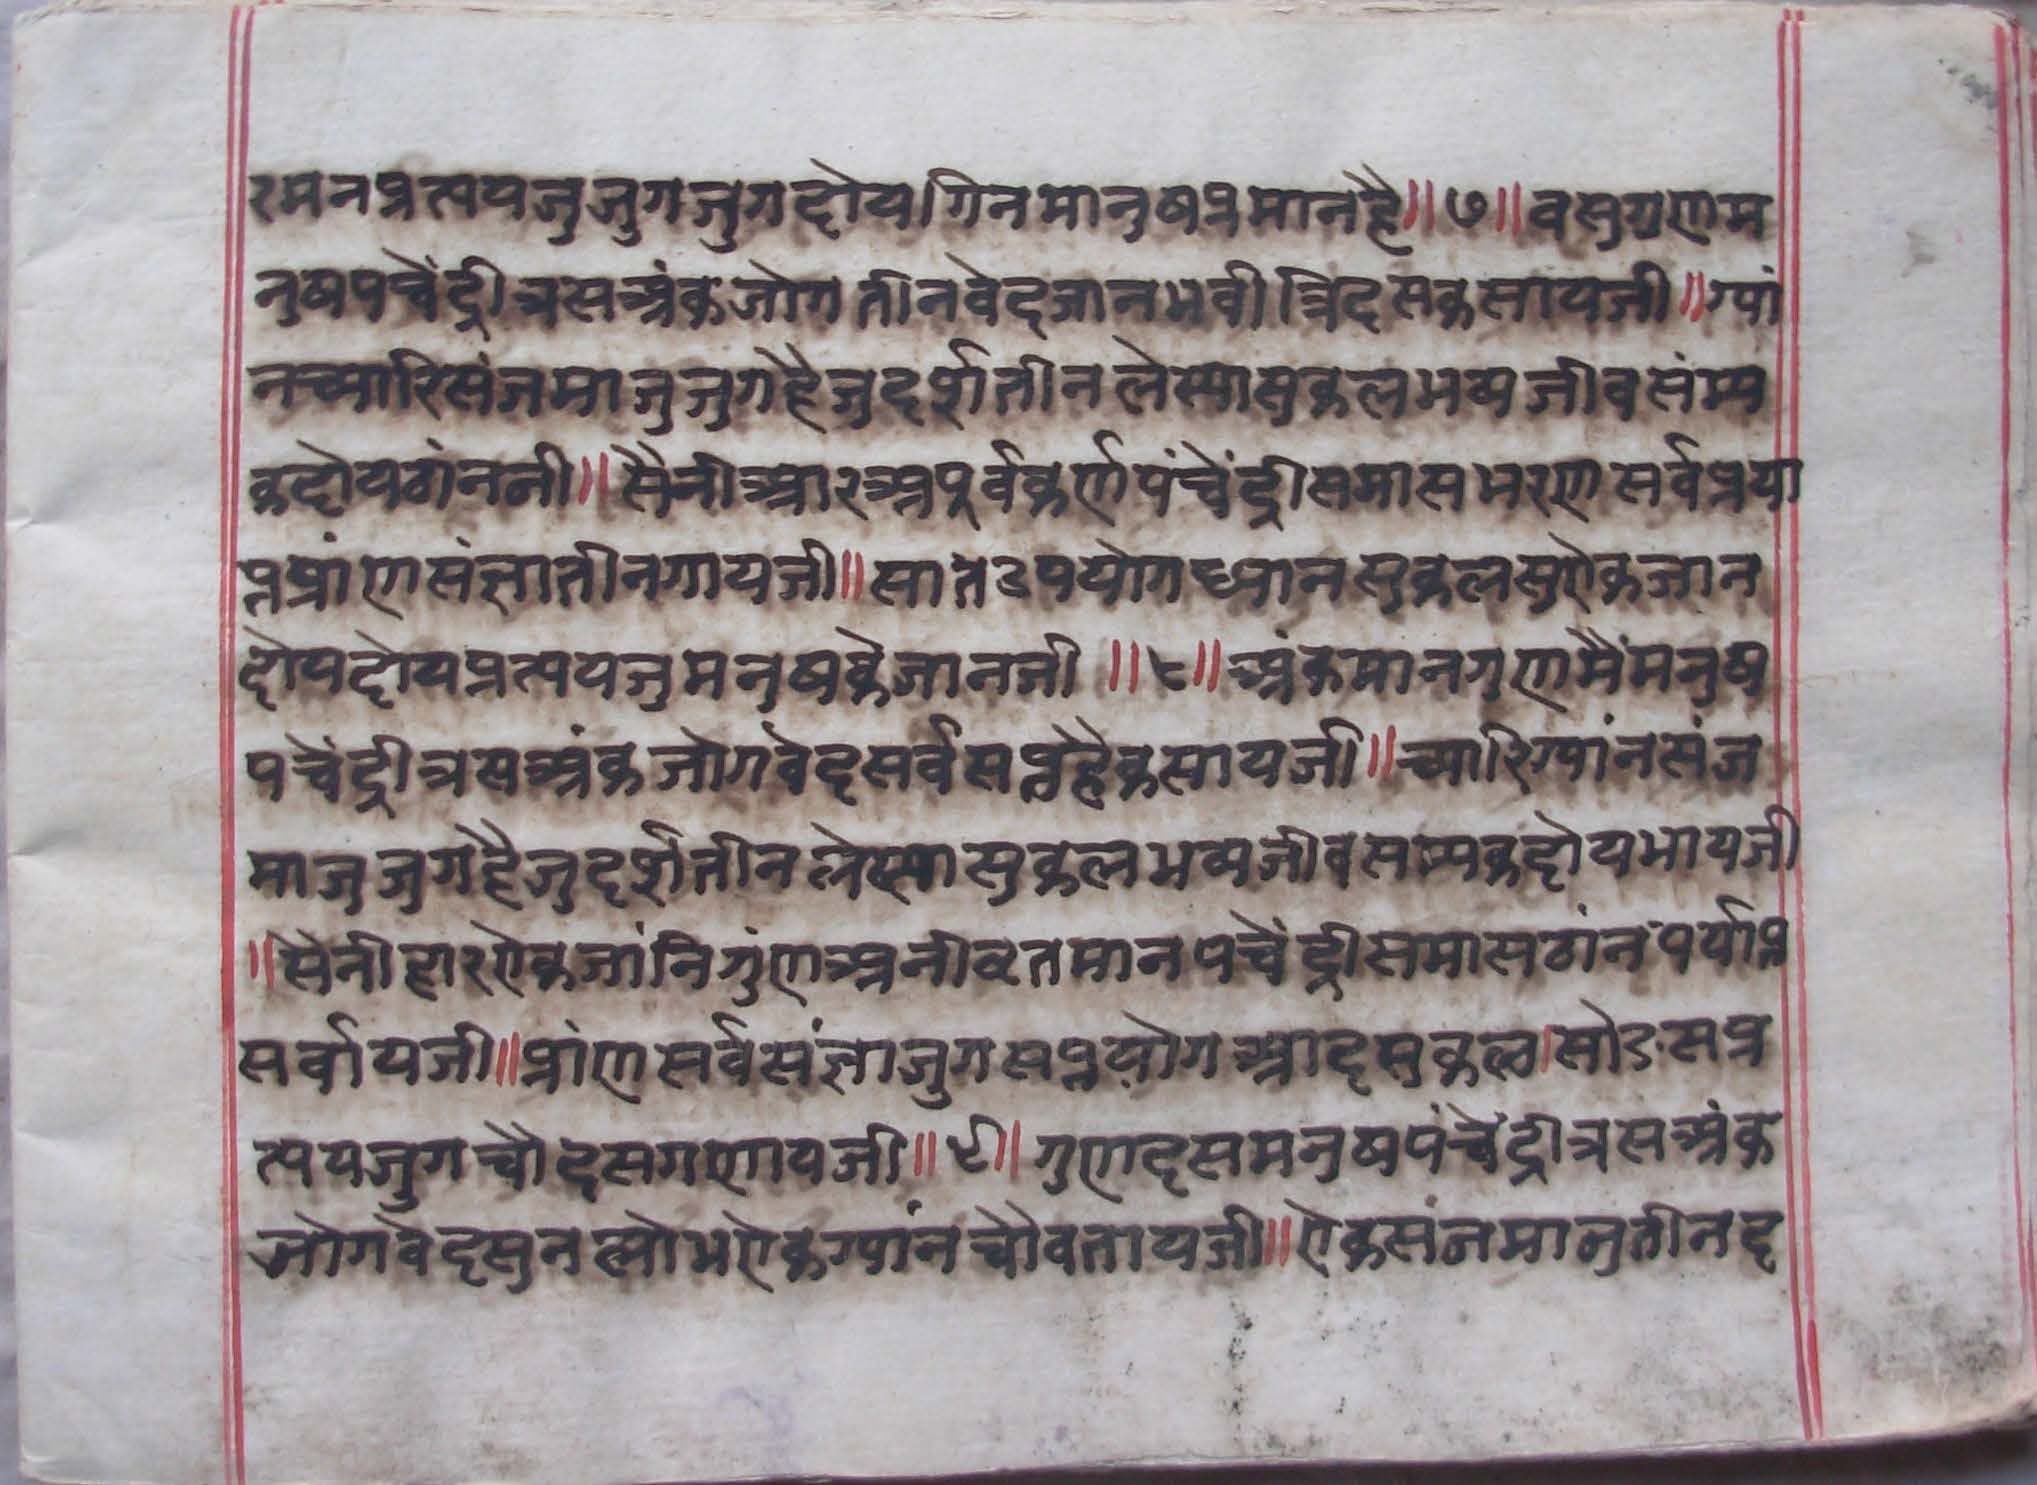 रमनप्रत्ययजुजुगजुगदोयगिनमानुषप्रमानहै॥७॥वसुगुणम
नुषपचेंद्रीत्रसअंकजोगतीनवेदजानभवीत्रिदसकसायजी॥ग्यां
नच्यारिसंजमाजुजुगहैजुदर्शतीनलेस्यासुकलभव्यजीवसंम्य
कदोयठांनजी॥सैनीआरअपूर्वकर्णपंचेंद्रीसमासभरणसर्वप्रया
प्तप्रांणसंज्ञातीनगायजी॥सातउपयोगध्यानसुकलसुऐकजान
दोयदोयप्रत्ययजुमनुषकेजानजी॥८॥अंकमानगुणमैंमनुष
पचेंद्रीत्रसअंकजोगवेदसर्वसप्तहैकसायजी॥च्यारिग्यांनसंज
माजुजुगहैजुदर्शतीनलेस्यासुकलभव्यजीवसम्यकदोयभायजी
॥सैनीहारऐकजांनिगुंणअनीव्रतमानपचेंद्रीसमासठांनपर्याप्त
सर्वायजी॥प्रांणसर्वसंज्ञाजुगसप्तयोगआदसुकल।सोडसप्र
त्ययजुगचौदसगणायजी॥९॥गुणदसमनुषपंचेंद्रीत्रसअंक
जोगवेदसुनलोभऐकग्यांनचौवतायजी॥ऐकसंजमाजुतीनद